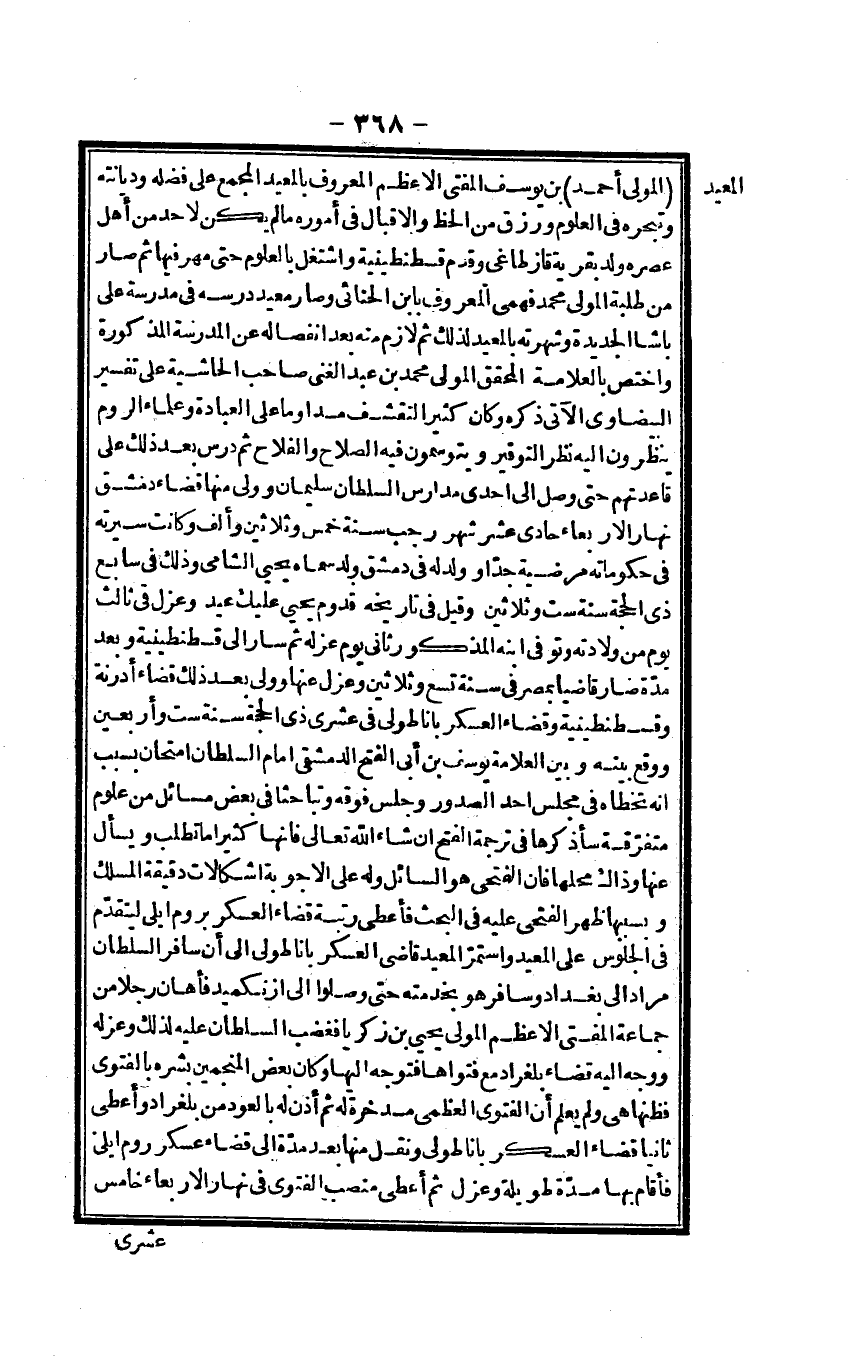 - ٣٦٨ -
المعيد
(المولى أحمد) بن يوسف المفتى الاعظم المعروف بالمعيد المجمع على فضله وديانته
وتبحره فى العلوم ورزق من الحظ والاقبال فى أموره مالم يكن لاحد من أهل
عصره ولد بقرية قازطاغى وقدم قسطنطينية واشتغل بالعلوم حتى مهر فيها ثم صار
من طلبة المولى محمد فهمى المعروف بابن الحنائى وصار معيد درسه فى مدرسة على
باشا الجديدة وشهرته بالمعيد لذلك ثم لازم منه بعد انفصاله عن المدرسة المذكورة
واختص بالعلامة المحقق المولى محمد بن عبد الغنى صاحب الحاشية على تفسير
البيضاوى الآتى ذكره وكان كثير التقشف مداوما على العبادة وعلماء الروم
ينظرون اليه نظر التوقير ويتوسمون فيه الصلاح والفلاح ثم درس بعد ذلك على
قاعدتهم حتى وصل الى احدى مدارس السلطان سليمان وولى منها قضاء دمشق
نهار الاربعاء حادى عشر شهر رجب سنة خمس وثلاثين وألف وكانت سيرته
فى حكوماته مرضية جدا وولد له فى دمشق ولد سماه يحيى الشامى وذلك فى سابع
ذى الحجة سنة ست وثلاثين وقيل فى تاريخه قدوم يحيى عليك عيد وعزل فى ثالث
يوم من ولادته وتوفى ابنه المذكور ثانى يوم عزله ثم سار الى قسطنطينية وبعد
مدّة صار قاضيا بمصر فى سنة تسع وثلاثين وعزل عنها وولى بعد ذلك قضاء أدرنة
وقسطنطينية وقضاء العسكر باناطولى فى عشرى ذى الحجة سنة ست وأربعين
ووقع بينه وبين العلامة يوسف بن أبى الفتح الدمشقى امام السلطان امتحان بسبب
انه تخطاه فى مجلس احد الصدور وجلس فوقه وتباحثا فى بعض مسائل من علوم
متفرّقة سأذكرها فى ترجمة الفتح ان شاء الله تعالى فانها كثيرا ما تطلب ويسأل
عنها وذاك محلها فان الفتحى هو السائل وله على الاجوبة اشكالات دقيقة المسلك
وبسببها ظهر الفتحى عليه فى البحث فأعطى رتبة قضاء العسكر بروم ايلى ليتقدّم
فى الجلوس على المعيد واستمرّ المعيد قاضى العسكر باناطولى الى أن سافر السلطان
مراد الى بغداد وسافر هو بخدمته حتى وصلوا الى ازنكميد فأهان رجلا من
جماعة المفتى الاعظم المولى يحيى بن زكريا فغضب السلطان عليه لذلك وعزله
ووجه اليه قضاء بلغراد مع فتواها فتوجه اليها وكان بعض المنجمين بشره بالفتوى
فظنها هى ولم يعلم أن الفتوى العظمى مدخرة له ثم أذن له بالعود من بلغراد وأعطى
ثانيا قضاء العسكر باناطولى ونقل منها بعد مدّة الى قضاء عسكر روم ايلى
فأقام بها مدّة طويلة وعزل ثم أعطى منصب الفتوى فى نهار الاربعاء خامس
عشرى